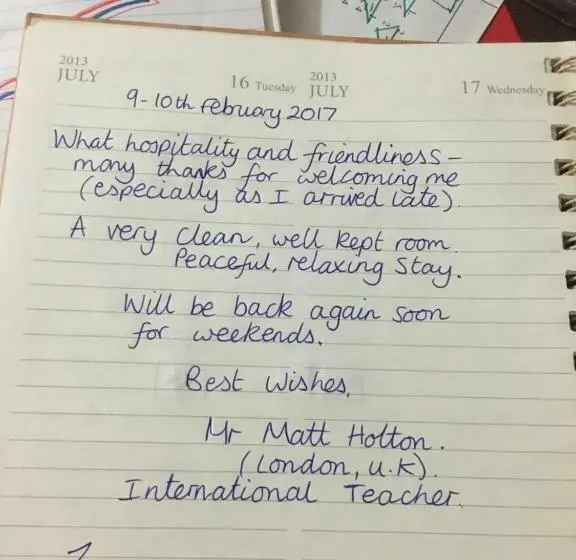 2013
JULY
16 Tuesday
2013
JULY
17 Wednesday
9-10th February 2017
What hospitality and friendliness -
many thanks for welcoming me
(especially as I arrived late).
A very clean, well kept room.
Peaceful, relaxing stay.
Will be back again soon
for weekends.
Best Wishes,
Mr Matt Holton.
(London, U.K).
International Teacher.